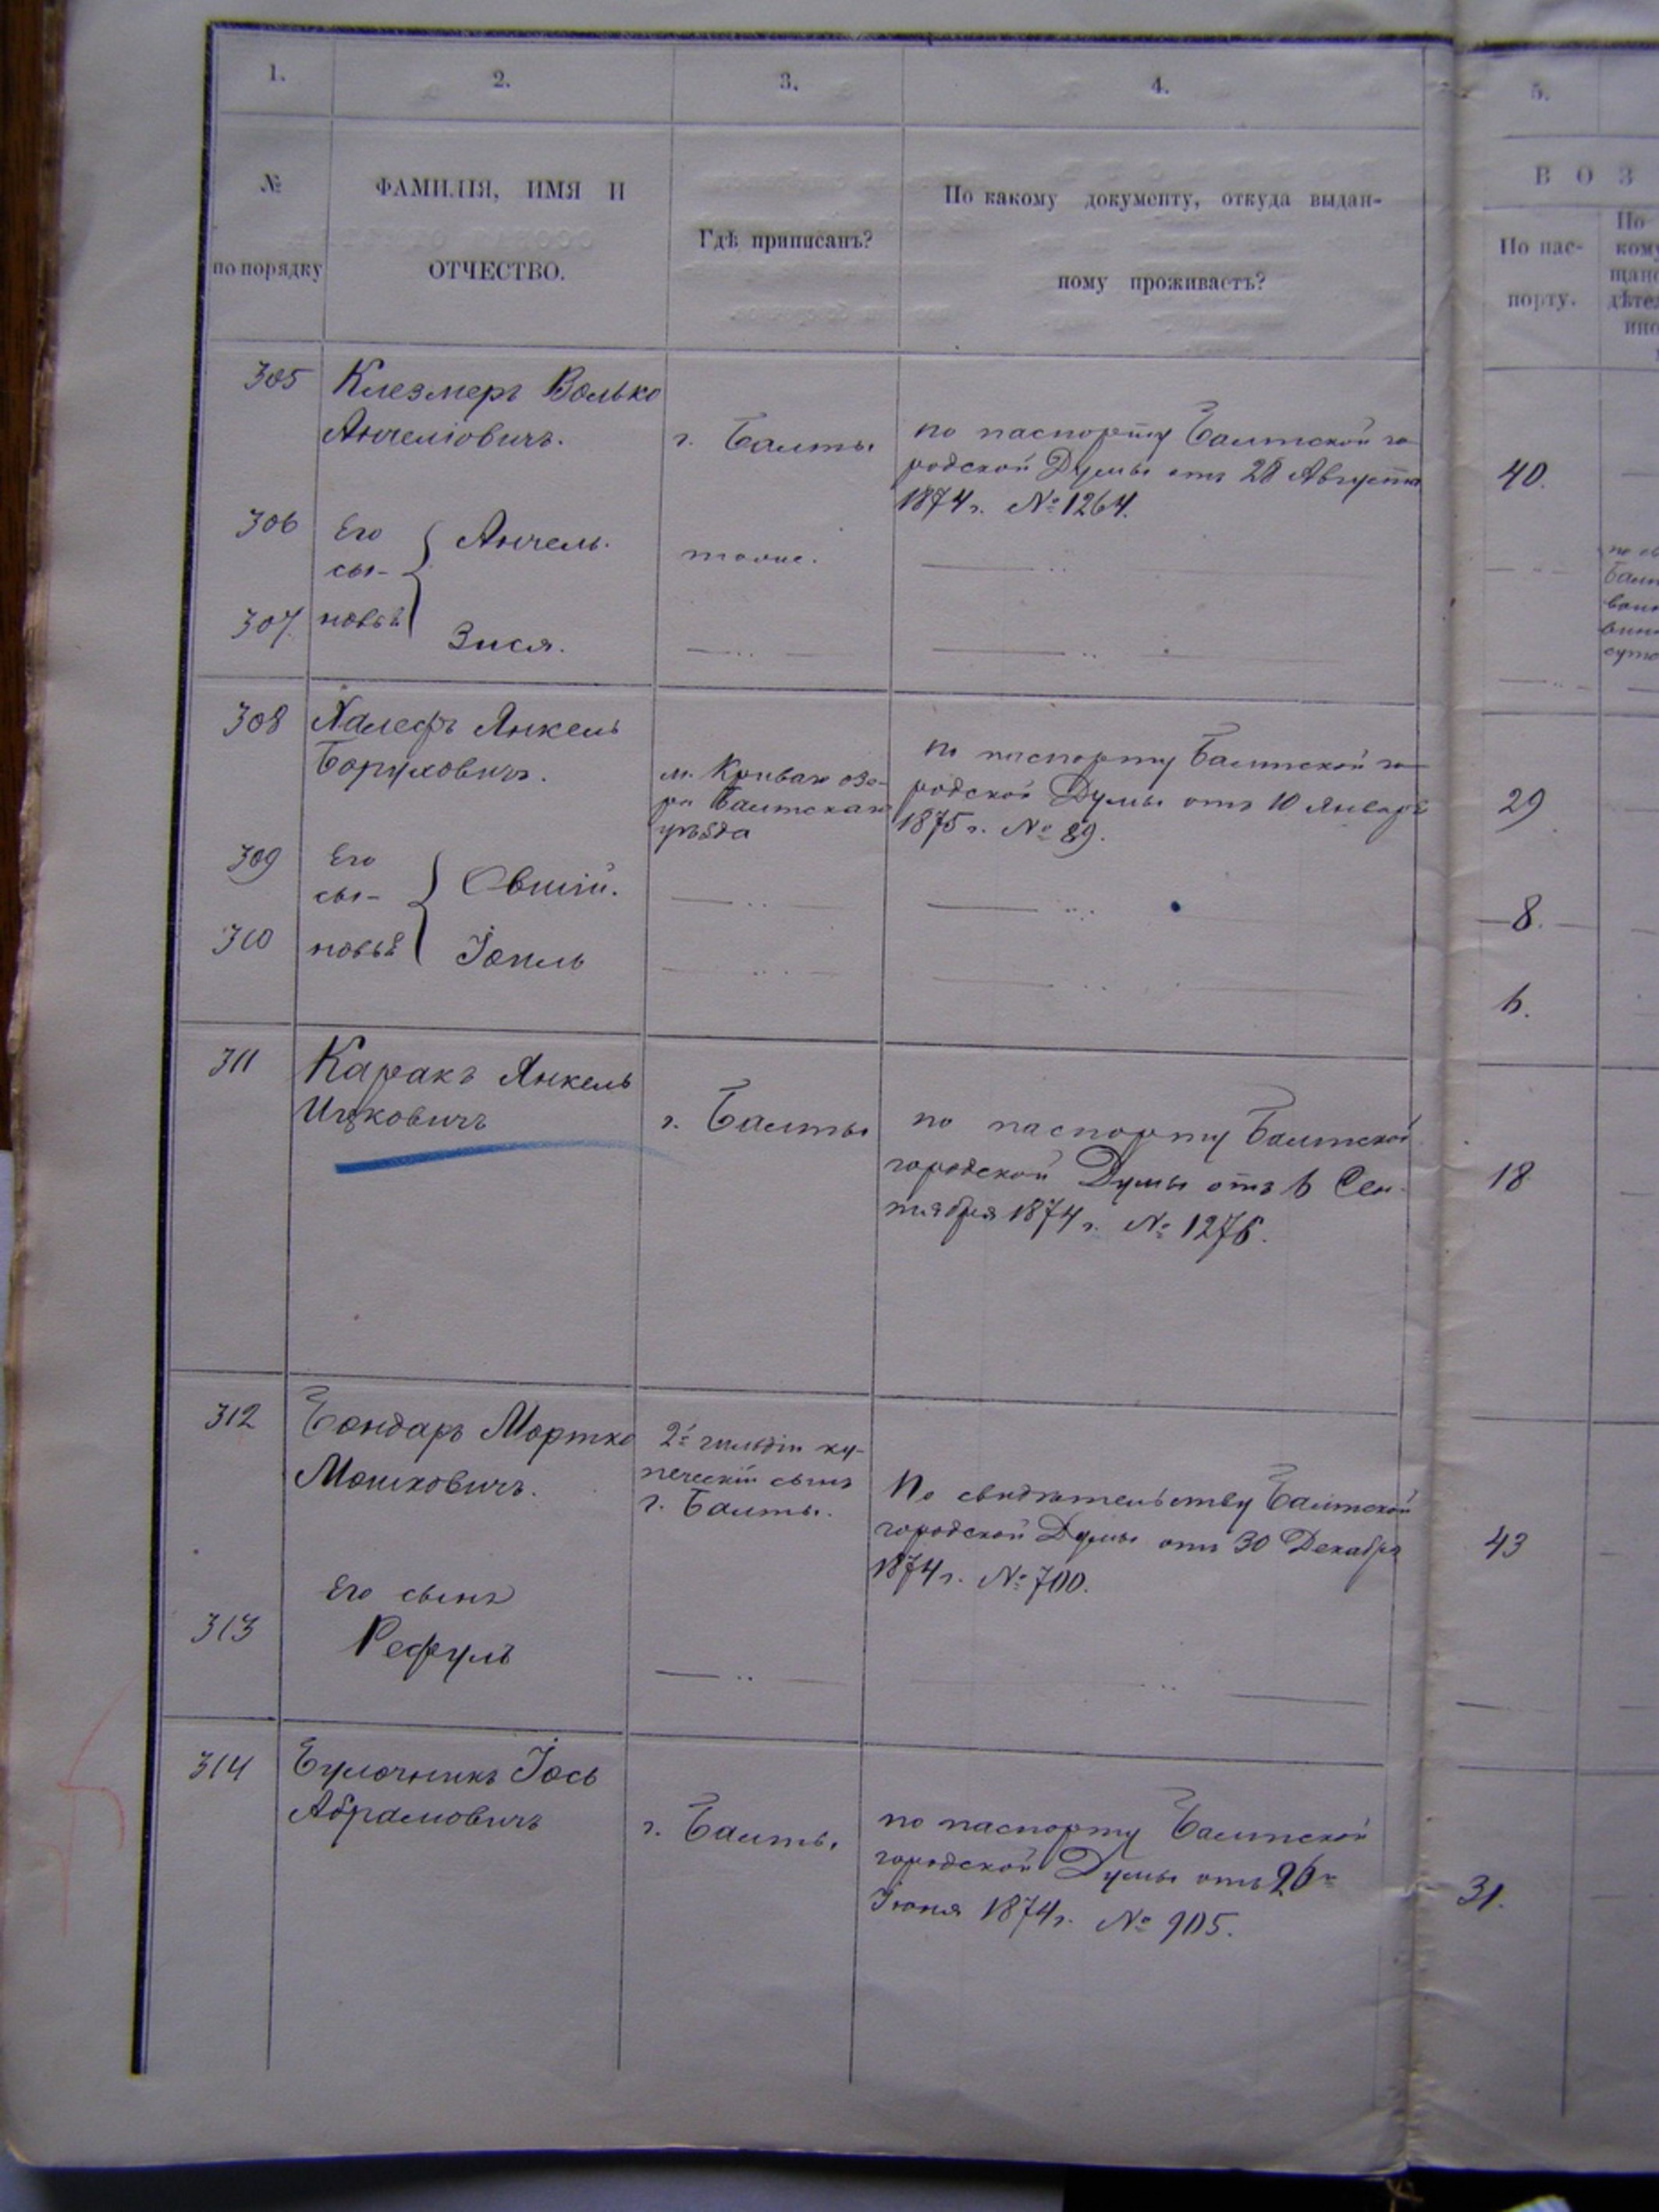 1.
2.
3.
4.
5.
№
по порядку
ФАМИЛІЯ, ИМЯ И
ОТЧЕСТВО.
Гдѣ приписанъ?
По какому документу, откуда выдан-
ному проживаетъ?
ВОЗ
По пас-
порту.
По
кому
щанс
дѣтел
305
Клезмеръ Волько
Анчеліовичъ.
г. Балты
по паспорту Балтской го-
родской Думы отъ 28 Августа
1874 г. № 1264.
40.
306
Его
сы-
новья
Анчель.
тоже.
307.
Зися.
308
Халефъ Янкель
Боруховичъ.
м. Кривая озе-
ра Балтскаго
уѣзда
по паспорту Балтской го-
родской Думы отъ 10 Января
1875 г. № 89.
29
309
Его
сы-
новья
Овшій.
8.
310
Іоиль
6.
311
Каракъ Янкель
Ицковичъ
г. Балты
по паспорту Балтской
городской Думы отъ 6 Сен-
тября 1874 г. № 1276.
18
312
Бондаръ Мортко
Мошковичъ.
2й гильдіи ку-
печескій сынъ
г. Балты.
По свидѣтельству Балтской
городской Думы отъ 30 Декабря
1874 г. № 700.
43
Его сынъ
313
Рефуль
314
Булочникъ Іось
Абрамовичъ
г. Балты,
по паспорту Балтской
городской Думы отъ 26го
Іюня 1874 г. № 905.
31.